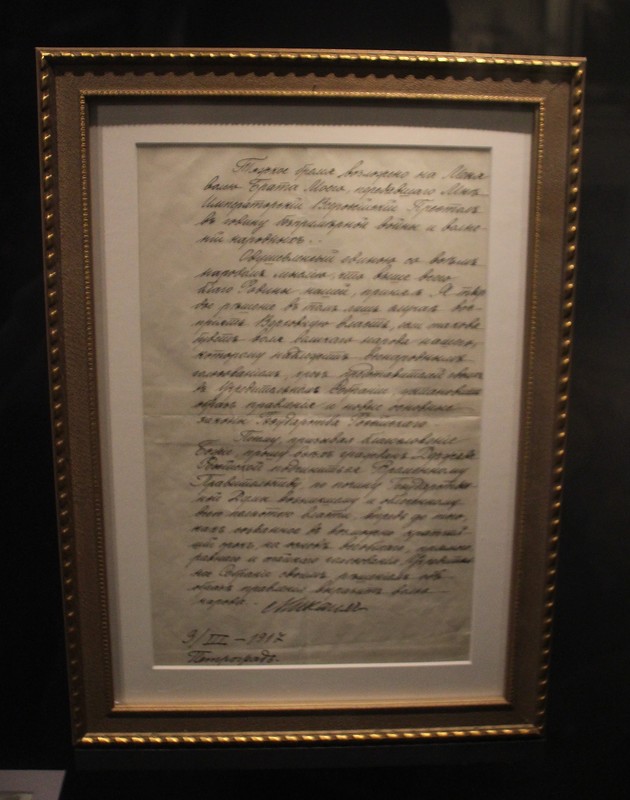 Тяжкое бремя возложено на Меня
волею Брата Моего, передавшаго Мнѣ
Императорскій Всероссійскій Престолъ
въ годину безпримѣрной войны и волне-
ній народныхъ.
Одушевленный единою со всѣмъ
народомъ мыслію, что выше всего
благо Родины нашей, принялъ Я твер-
дое рѣшеніе въ томъ лишь случаѣ вос-
пріять Верховную власть, если такова
будетъ воля великаго народа нашего,
которому надлежитъ всенароднымъ
голосованіемъ, чрезъ представителей своихъ
въ Учредительномъ Собраніи, установить
образъ правленія и новые основные
законы Государства Россійскаго.
Посему, призывая благословеніе
Божіе, прошу всѣхъ гражданъ Державы
Россійской подчиниться Временному
Правительству, по почину Государствен-
ной Думы возникшему и облеченному
всей полнотою власти, впредь до того,
какъ созванное въ возможно кратчай-
шій срокъ на основѣ всеобщаго, прямого,
равнаго и тайнаго голосованія Учредитель-
ное Собраніе своимъ рѣшеніемъ объ
образѣ правленія выразитъ волю
народа. Михаилъ
3/III – 1917
Петроградъ.